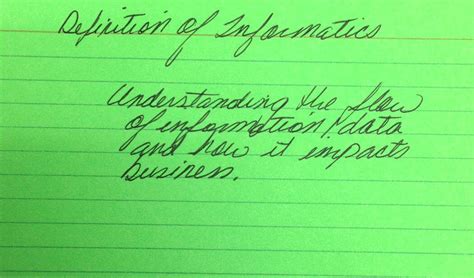 Definition of Informatics
Understanding the flow
of information/data
and how it impacts
business.